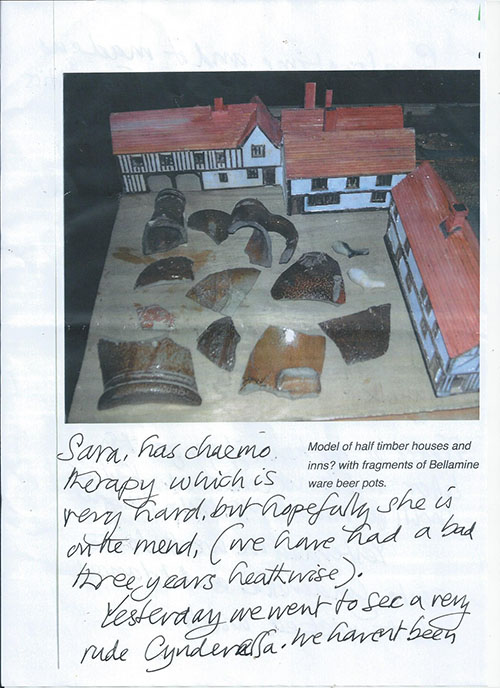 Model of half timber houses and
inns? with fragments of Bellamine
ware beer pots.
Sara, has chaemo
therapy which is
very hard, but hopefully she is
on the mend, (we have had a bad
three years heathwise).
Yesterday we went to see a very
rude Cynderella. We havent been